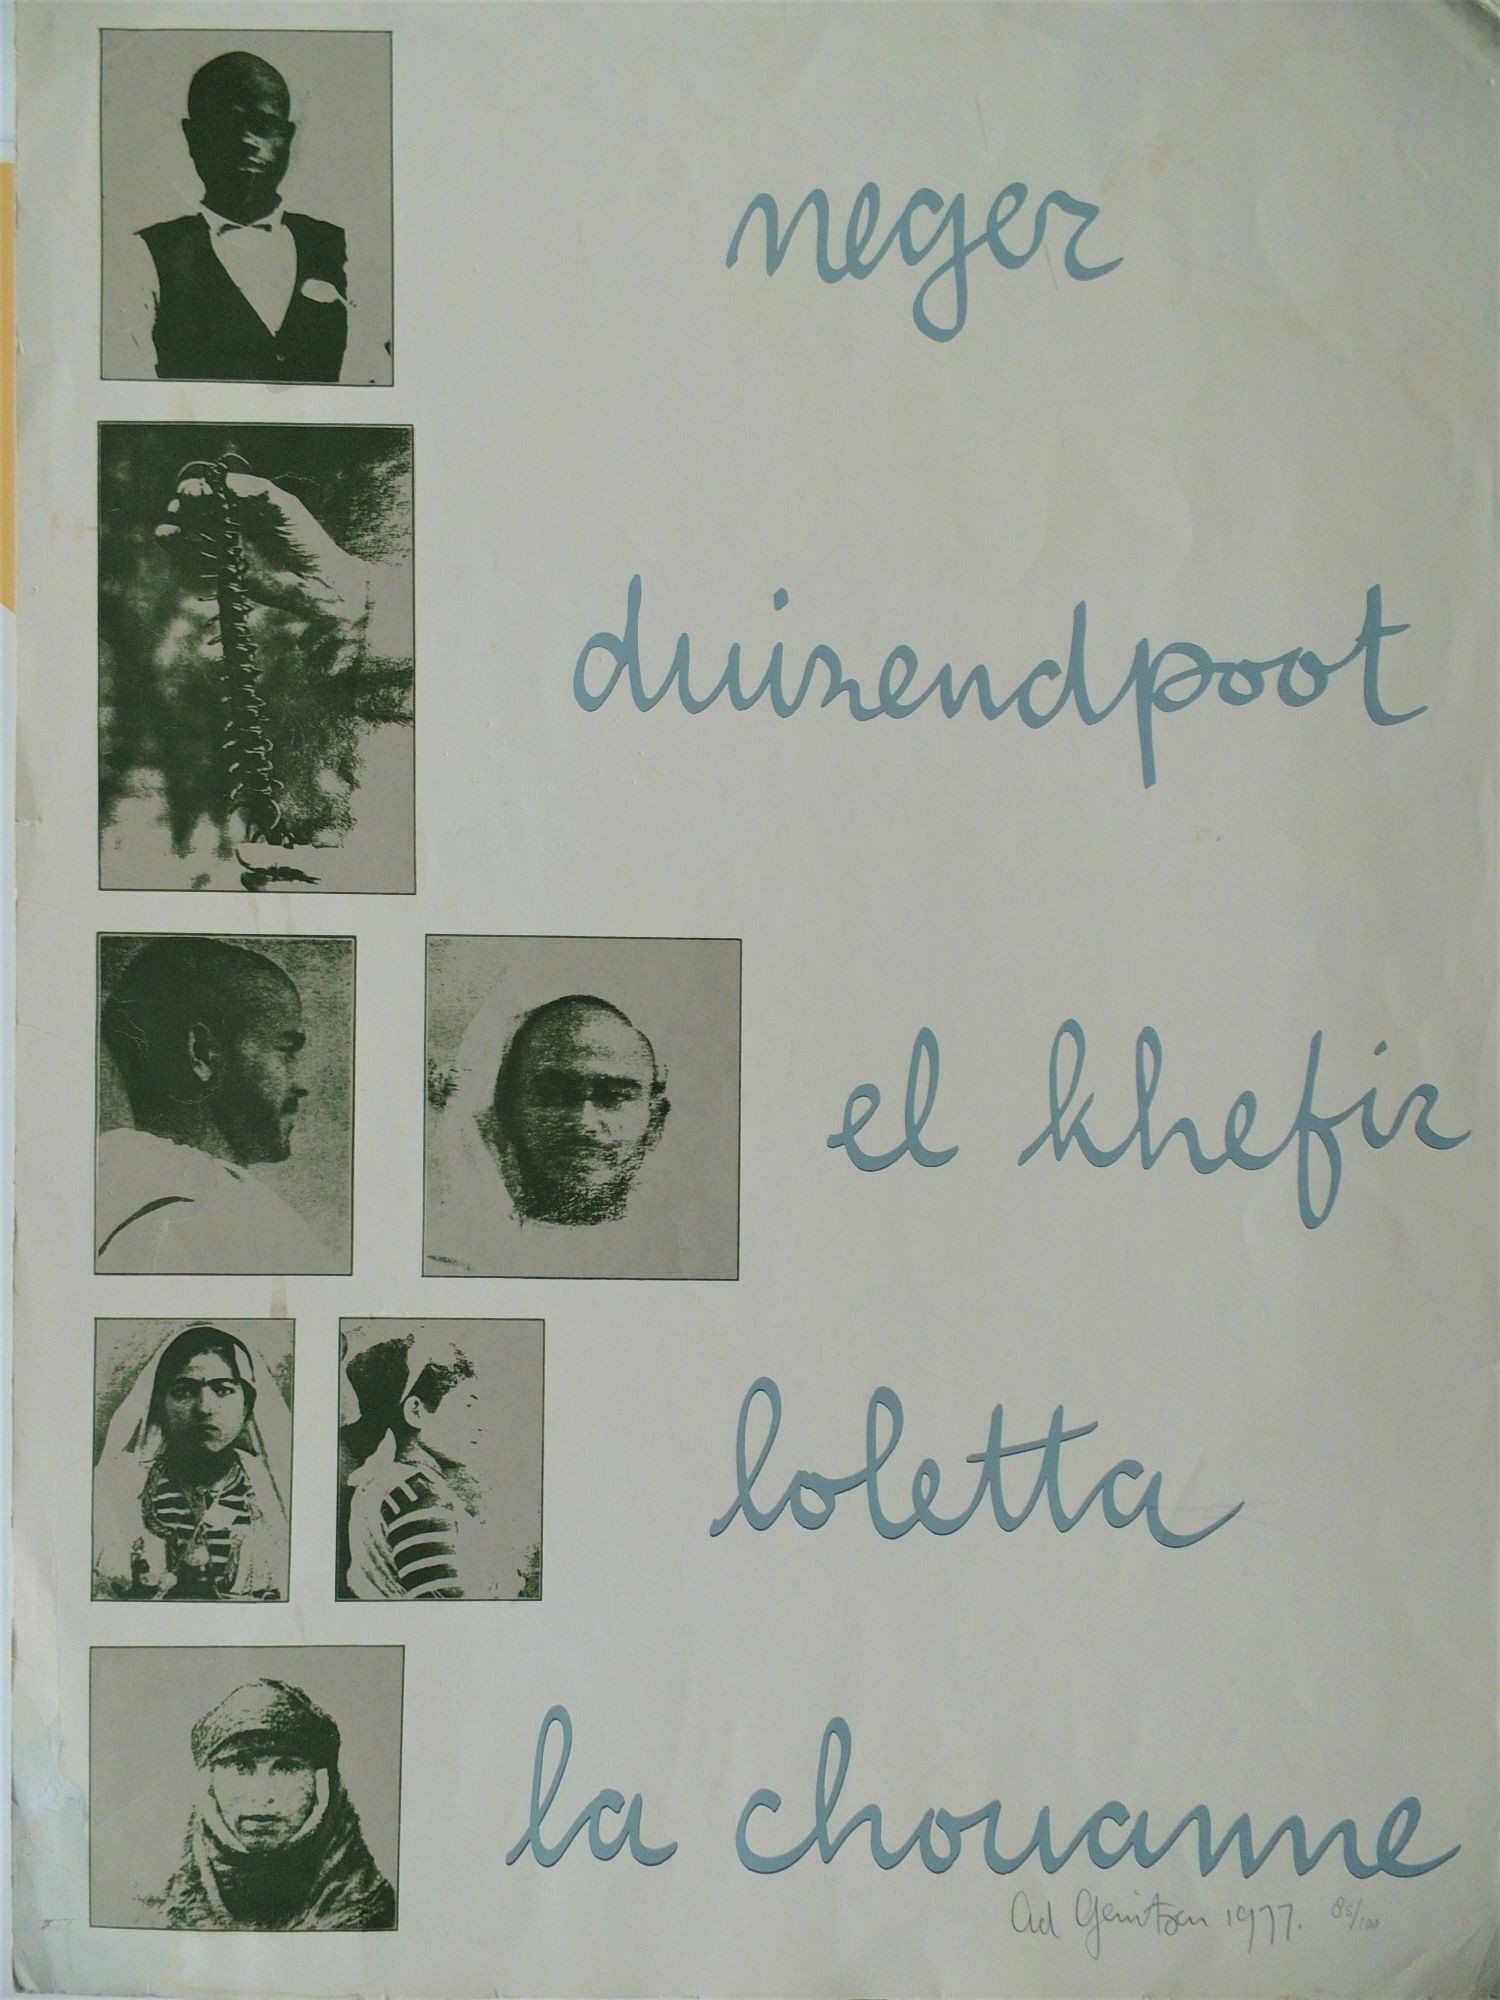 neger
duizendpoot
el khefir
loletta
la chouanne
Ad Gerritsen 1977. 85/100